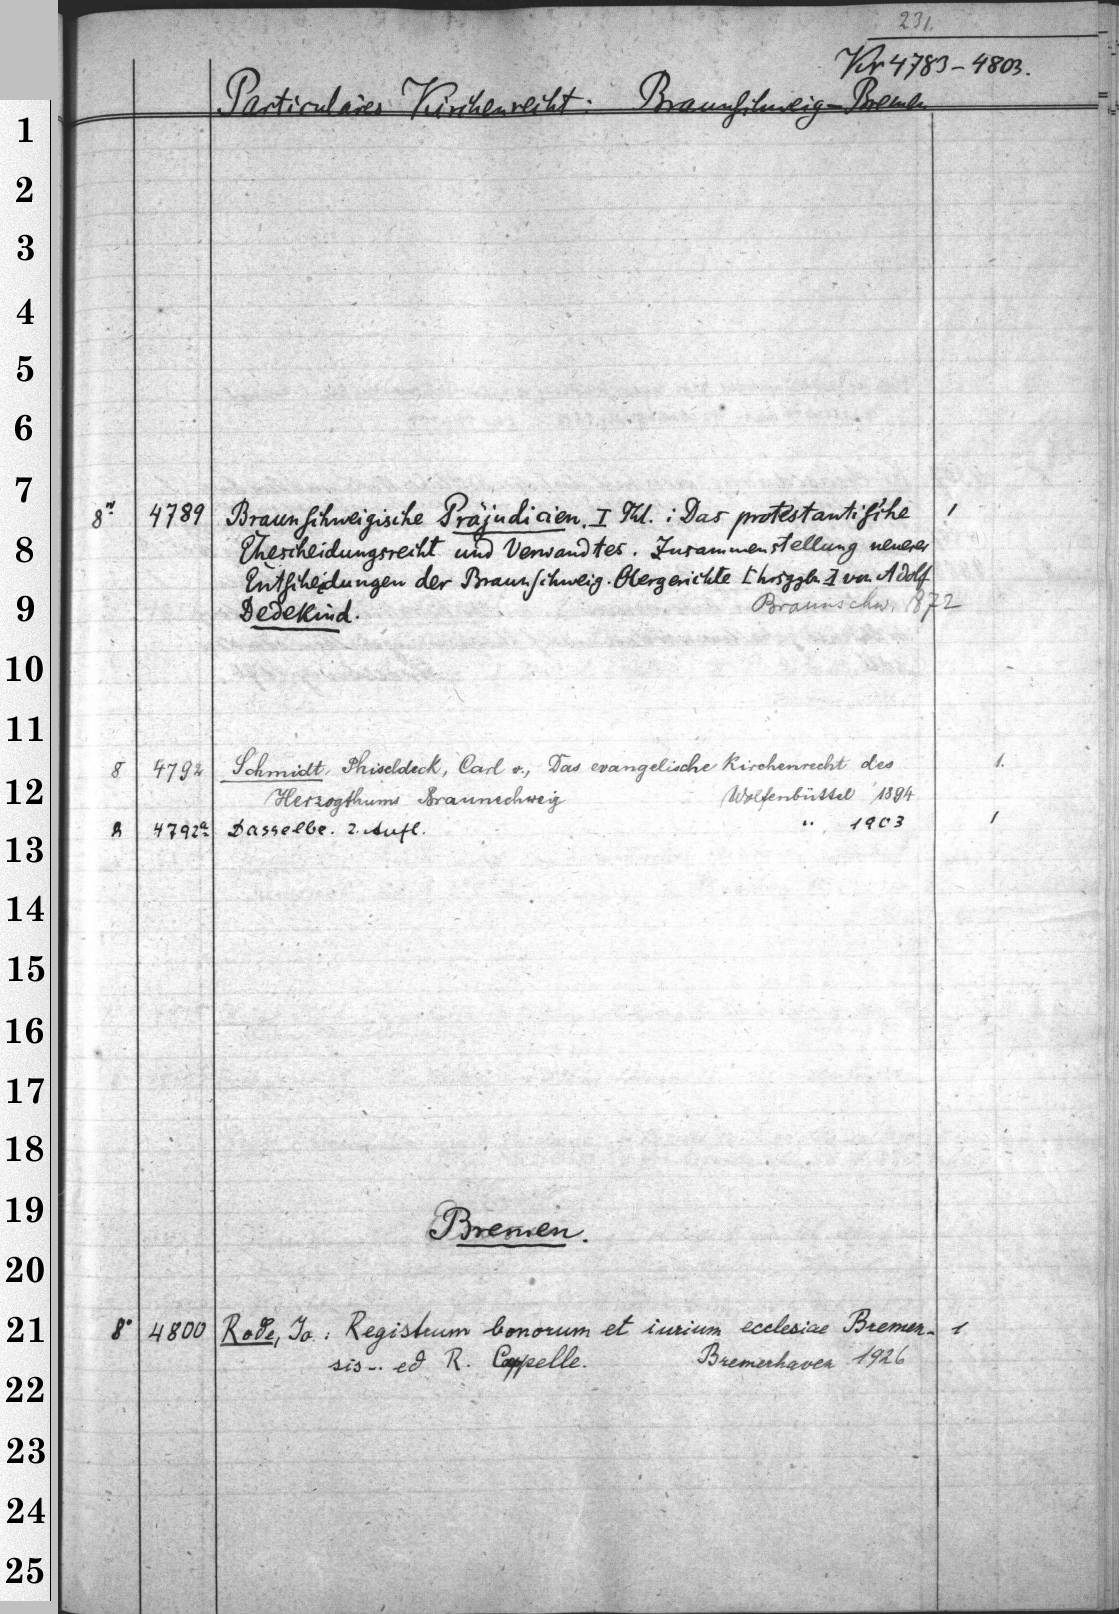 231.
Kr 4783 – 4803.
Particuläres Kirchenrecht: Braunschweig – Bremen
1
2
3
4
5
6
7
8° 4789 Braunschweigische Präjudicien. I Thl.: Das protestantische 1
8 Ehescheidungsrecht und Verwandtes. Zusammenstellung neuerer
Entscheidungen der Braunschweig. Obergerichte [hrsggbn.] von Adolf
9 Dedekind. Braunschw. 1872
10
11
8 4792 Schmidt, Phiseldeck, Carl v., Das evangelische Kirchenrecht des 1.
12 Herzogthums Braunschweig Wolfenbüttel 1894
8 4792a Dasselbe. 2. Aufl. " 1903 1
13
14
15
16
17
18
19
Bremen.
20
21 8° 4800 Rode, Jo.: Registrum bonorum et iurium ecclesiae Bremen- 1
sis... ed R. Cappelle. Bremerhaven 1926
22
23
24
25